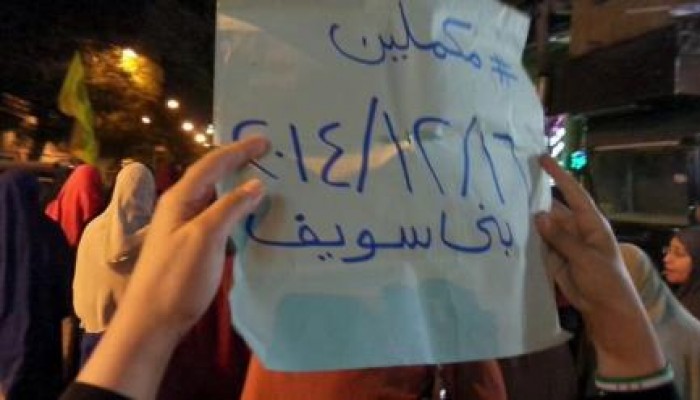 #مكملين
١٦/١٢/٢٠١٤
بنى سويف